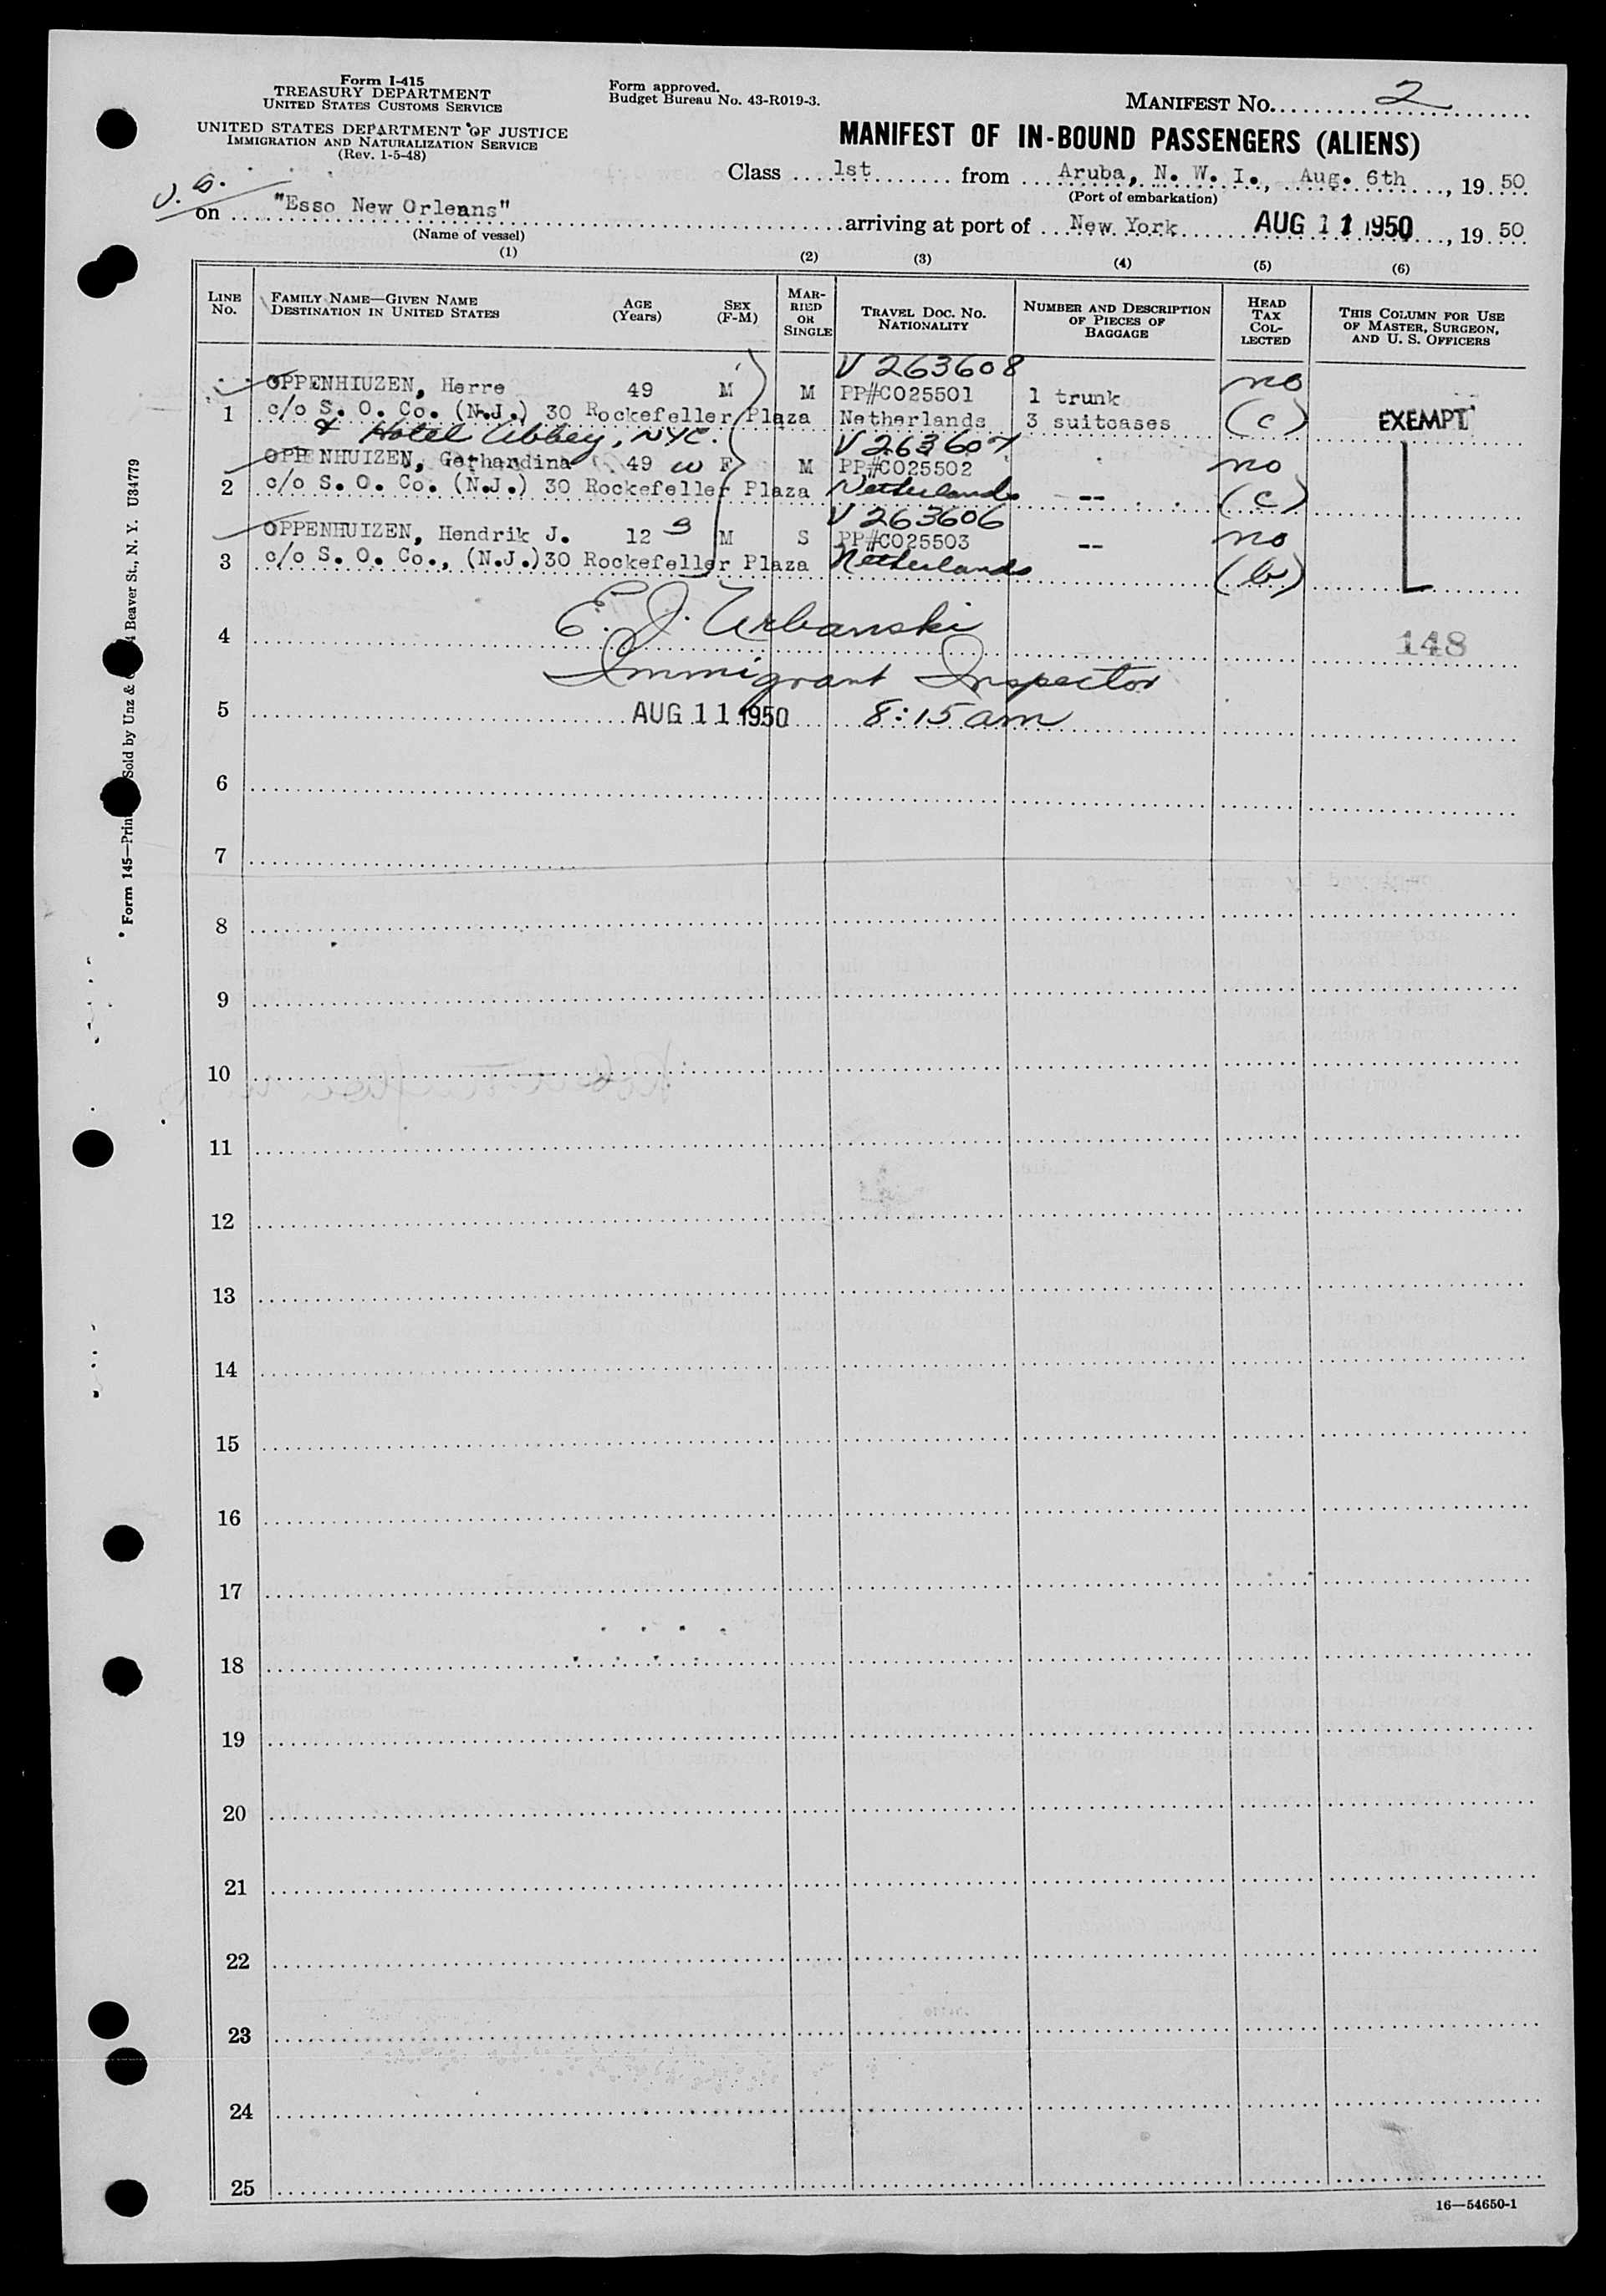 Form I-415
TREASURY DEPARTMENT
UNITED STATES CUSTOMS SERVICE
UNITED STATES DEPARTMENT OF JUSTICE
IMMIGRATION AND NATURALIZATION SERVICE
(Rev. 1-5-48)
Form approved.
Budget Bureau No. 43-R019-3.
MANIFEST NO. 2
MANIFEST OF IN-BOUND PASSENGERS (ALIENS)
Class 1st from Aruba, N. W. I., Aug. 6th, 19 50
(Port of embarkation)
on "Esso New Orleans" arriving at port of New York AUG 11 1950, 19 50
(Name of vessel)
(1) (2) (3) (4) (5) (6)
LINE NO. FAMILY NAME—GIVEN NAME DESTINATION IN UNITED STATES AGE (Years) SEX (F-M) MARRIED OR SINGLE TRAVEL DOC. NO. NATIONALITY NUMBER AND DESCRIPTION OF PIECES OF BAGGAGE HEAD TAX COLLECTED THIS COLUMN FOR USE OF MASTER, SURGEON, AND U. S. OFFICERS
V 263608
OPPENHIUZEN, Herre 49 M M PP#C025501 1 trunk no
1 c/o S. O. Co. (N.J.) 30 Rockefeller Plaza Netherlands 3 suitcases (c) EXEMPT
& Hotel Abbey, NYC. V 263607
OPPENHUIZEN, Gethandina 49 w F M PP#C025502 no
2 c/o S. O. Co. (N.J.) 30 Rockefeller Plaza Netherlands -- (c)
V 263606
OPPENHUIZEN, Hendrik J. 12 M S PP#C025503 -- no
3 c/o S. O. Co., (N.J.)30 Rockefeller Plaza Netherlands (b)
E. J. Urbanski
4 148
Immigrant Inspector
5 AUG 11 1950 8:15 am
6
7
8
9
10
11
12
13
14
15
16
17
18
19
20
21
22
23
24
25
16—54650-1
Beaver St., N. Y. U34779